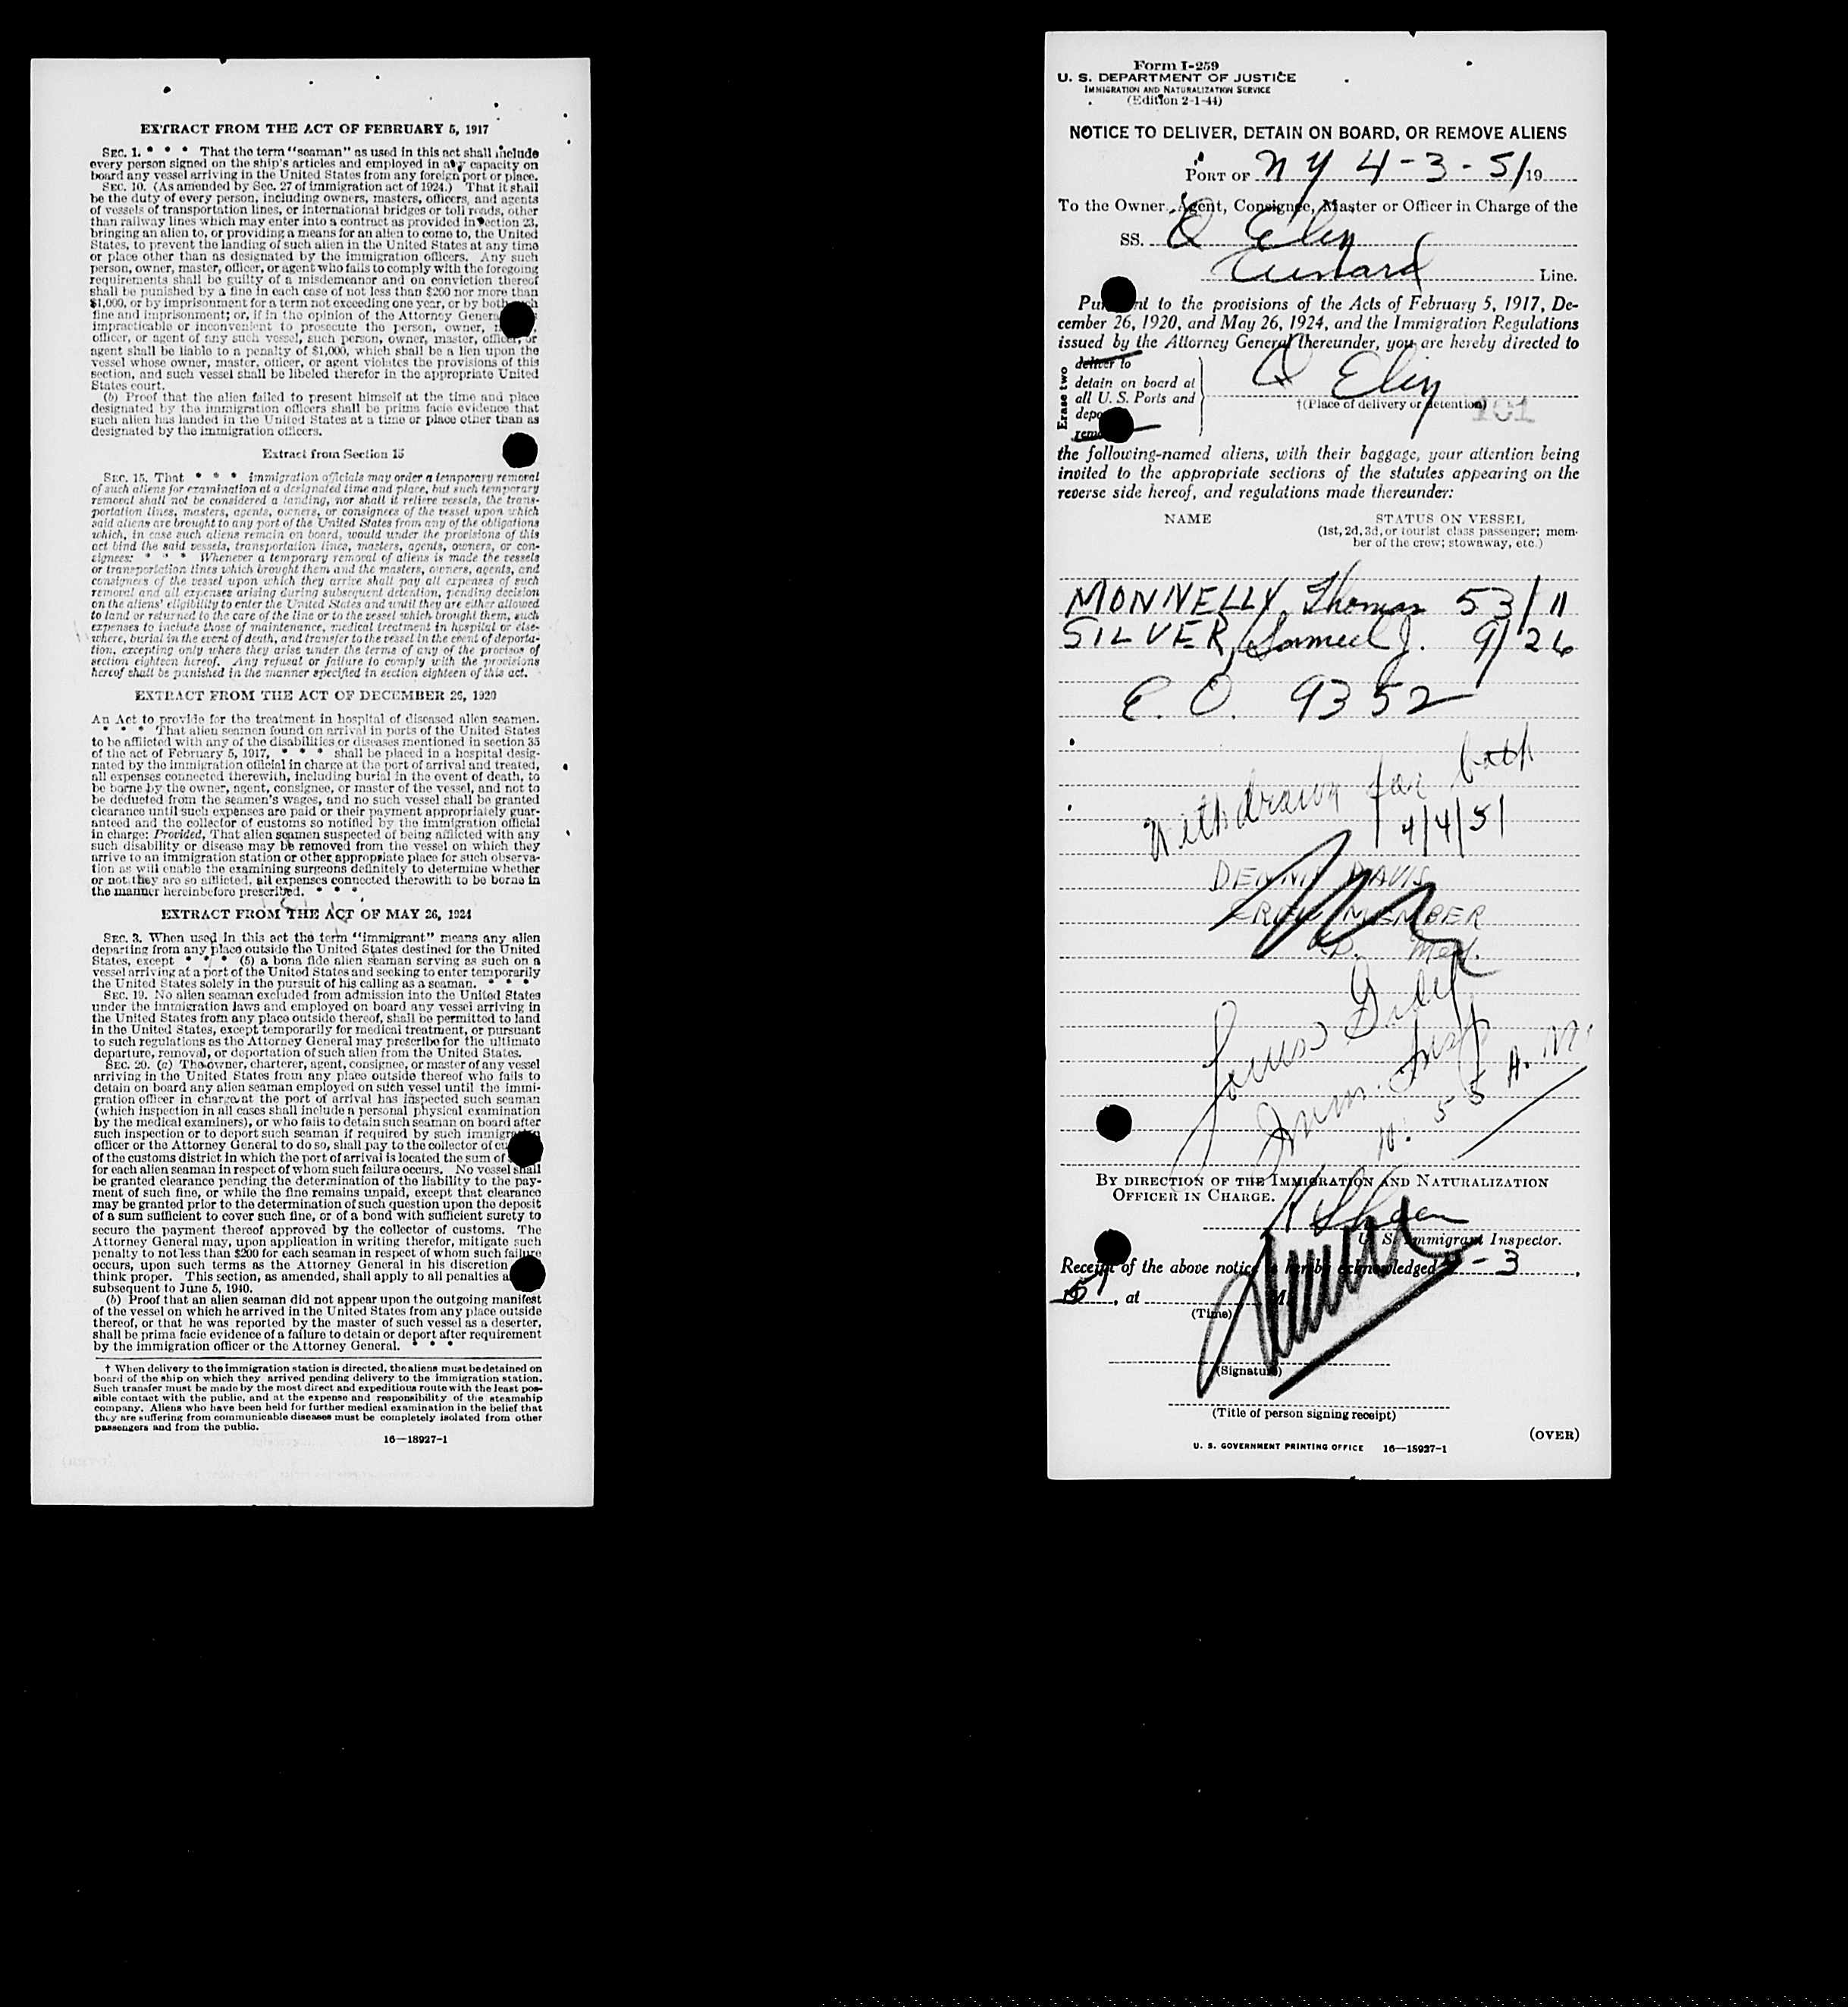 EXTRACT FROM THE ACT OF FEBRUARY 5, 1917
SEC. 1. * * * That the term "seaman" as used in this act shall include
every person signed on the ship's articles and employed in any capacity on
board any vessel arriving in the United States from any foreign port or place.
SEC. 10. (As amended by Sec. 27 of immigration act of 1924.) That it shall
be the duty of every person, including owners, masters, officers, and agents
of vessels of transportation lines, or international bridges or toll roads, other
than railway lines which may enter into a contract as provided in section 23,
bringing an alien to, or providing a means for an alien to come to, the United
States, to prevent the landing of such alien in the United States at any time
or place other than as designated by the immigration officers. Any such
person, owner, master, officer, or agent who fails to comply with the foregoing
requirements shall be guilty of a misdemeanor and on conviction thereof
shall be punished by a fine in each case of not less than $200 nor more than
$1,000, or by imprisonment for a term not exceeding one year, or by both such
fine and imprisonment; or, if in the opinion of the Attorney General
impracticable or inconvenient to prosecute the person, owner,
officer, or agent of any such vessel, such person, owner, master, officer, or
agent shall be liable to a penalty of $1,000, which shall be a lien upon the
vessel whose owner, master, officer, or agent violates the provisions of this
section, and such vessel shall be libeled therefor in the appropriate United
States court.
(b) Proof that the alien failed to present himself at the time and place
designated by the immigration officers shall be prima facie evidence that
such alien has landed in the United States at a time or place other than as
designated by the immigration officers.
Extract from Section 15
SEC. 15. That * * * immigration officials may order a temporary removal
of such aliens for examination at a designated time and place, but such temporary
removal shall not be considered a landing, nor shall it relieve vessels, the trans-
portation lines, masters, agents, owners, or consignees of the vessel upon which
said aliens are brought to any port of the United States from any of the obligations
which, in case such aliens remain on board, would under the provisions of this
act bind the said vessels, transportation lines, masters, agents, owners, or con-
signees: * * * Whenever a temporary removal of aliens is made the vessels
or transportation lines which brought them and the masters, owners, agents, and
consignees of the vessel upon which they arrive shall pay all expenses of such
removal and all expenses arising during subsequent detention, pending decision
on the aliens' eligibility to enter the United States and until they are either allowed
to land or returned to the care of the line or to the vessel which brought them, such
expenses to include those of maintenance, medical treatment in hospital or else-
where, burial in the event of death, and transfer to the vessel in the event of deporta-
tion, excepting only where they arise under the terms of any of the provisos of
section eighteen hereof. Any refusal or failure to comply with the provisions
hereof shall be punished in the manner specified in section eighteen of this act.
EXTRACT FROM THE ACT OF DECEMBER 26, 1920
An Act to provide for the treatment in hospital of diseased alien seamen.
* * * * That alien seamen found on arrival in ports of the United States
to be afflicted with any of the disabilities or diseases mentioned in section 35
of the act of February 5, 1917, * * * shall be placed in a hospital desig-
nated by the immigration official in charge at the port of arrival and treated,
all expenses connected therewith, including burial in the event of death, to
be borne by the owner, agent, consignee, or master of the vessel, and not to
be deducted from the seamen's wages, and no such vessel shall be granted
clearance until such expenses are paid or their payment appropriately guar-
anteed and the collector of customs so notified by the immigration official
in charge: Provided, That alien seamen suspected of being afflicted with any
such disability or disease may be removed from the vessel on which they
arrive to an immigration station or other appropriate place for such observa-
tion as will enable the examining surgeons definitely to determine whether
or not they are so afflicted, all expenses connected therewith to be borne in
the manner hereinbefore prescribed. * * *
EXTRACT FROM THE ACT OF MAY 26, 1924
SEC. 3. When used in this act the term "immigrant" means any alien
departing from any place outside the United States destined for the United
States, except * * * (5) a bona fide alien seaman serving as such on a
vessel arriving at a port of the United States and seeking to enter temporarily
the United States solely in the pursuit of his calling as a seaman. * * * *
SEC. 19. No alien seaman excluded from admission into the United States
under the immigration laws and employed on board any vessel arriving in
the United States from any place outside thereof, shall be permitted to land
in the United States, except temporarily for medical treatment, or pursuant
to such regulations as the Attorney General may prescribe for the ultimate
departure, removal, or deportation of such alien from the United States.
SEC. 20. (a) The owner, charterer, agent, consignee, or master of any vessel
arriving in the United States from any place outside thereof who fails to
detain on board any alien seaman employed on such vessel until the immi-
gration officer in charge at the port of arrival has inspected such seaman
(which inspection in all cases shall include a personal physical examination
by the medical examiners), or who fails to detain such seaman on board after
such inspection or to deport such seaman if required by such immigration
officer or the Attorney General to do so, shall pay to the collector of
of the customs district in which the port of arrival is located the sum of
for each alien seaman in respect of whom such failure occurs. No vessel shall
be granted clearance pending the determination of the liability to the pay-
ment of such fine, or while the fine remains unpaid, except that clearance
may be granted prior to the determination of such question upon the deposit
of a sum sufficient to cover such fine, or of a bond with sufficient surety to
secure the payment thereof approved by the collector of customs. The
Attorney General may, upon application in writing therefor, mitigate such
penalty to not less than $200 for each seaman in respect of whom such failure
occurs, upon such terms as the Attorney General in his discretion
think proper. This section, as amended, shall apply to all penalties
subsequent to June 5, 1940.
(b) Proof that an alien seaman did not appear upon the outgoing manifest
of the vessel on which he arrived in the United States from any place outside
thereof, or that he was reported by the master of such vessel as a deserter,
shall be prima facie evidence of a failure to detain or deport after requirement
by the immigration officer or the Attorney General. * * *
† When delivery to the immigration station is directed, the aliens must be detained on
board of the ship on which they arrived pending delivery to the immigration station.
Such transfer must be made by the most direct and expeditious route with the least pos-
sible contact with the public, and at the expense and responsibility of the steamship
company. Aliens who have been held for further medical examination in the belief that
they are suffering from communicable diseases must be completely isolated from other
passengers and from the public.
16—18927-1
Form I-259
U. S. DEPARTMENT OF JUSTICE
IMMIGRATION AND NATURALIZATION SERVICE
(Edition 2-1-44)
NOTICE TO DELIVER, DETAIN ON BOARD, OR REMOVE ALIENS
PORT OF N Y 4-3-51 19
To the Owner, Agent, Consignee, Master or Officer in Charge of the
SS. Q Eliz
Cunard Line.
Pursuant to the provisions of the Acts of February 5, 1917, De-
cember 26, 1920, and May 26, 1924, and the Immigration Regulations
issued by the Attorney General thereunder, you are hereby directed to
Erase two
deliver to
detain on board at
all U. S. Ports and
Q Eliz
†(Place of delivery or detention)
101
the following-named aliens, with their baggage, your attention being
invited to the appropriate sections of the statutes appearing on the
reverse side hereof, and regulations made thereunder:
NAME STATUS ON VESSEL
(1st, 2d, 3d, or tourist class passenger; mem-
ber of the crew; stowaway, etc.)
MONNELLY, Thomas 53/11
SILVER, Samuel J. 9/26
E. O. 9352
Withdrawn for both
4/4/51
DENNIS DAVIS
CREW MEMBER
Med.
Imm. Insp
10:55 A.M.
BY DIRECTION OF THE IMMIGRATION AND NATURALIZATION
OFFICER IN CHARGE.
U. S. Immigrant Inspector.
Receipt of the above notice is hereby acknowledged 4-3,
1951, at M.
(Time)
(Signature)
(Title of person signing receipt)
(OVER)
U. S. GOVERNMENT PRINTING OFFICE 16—18927-1